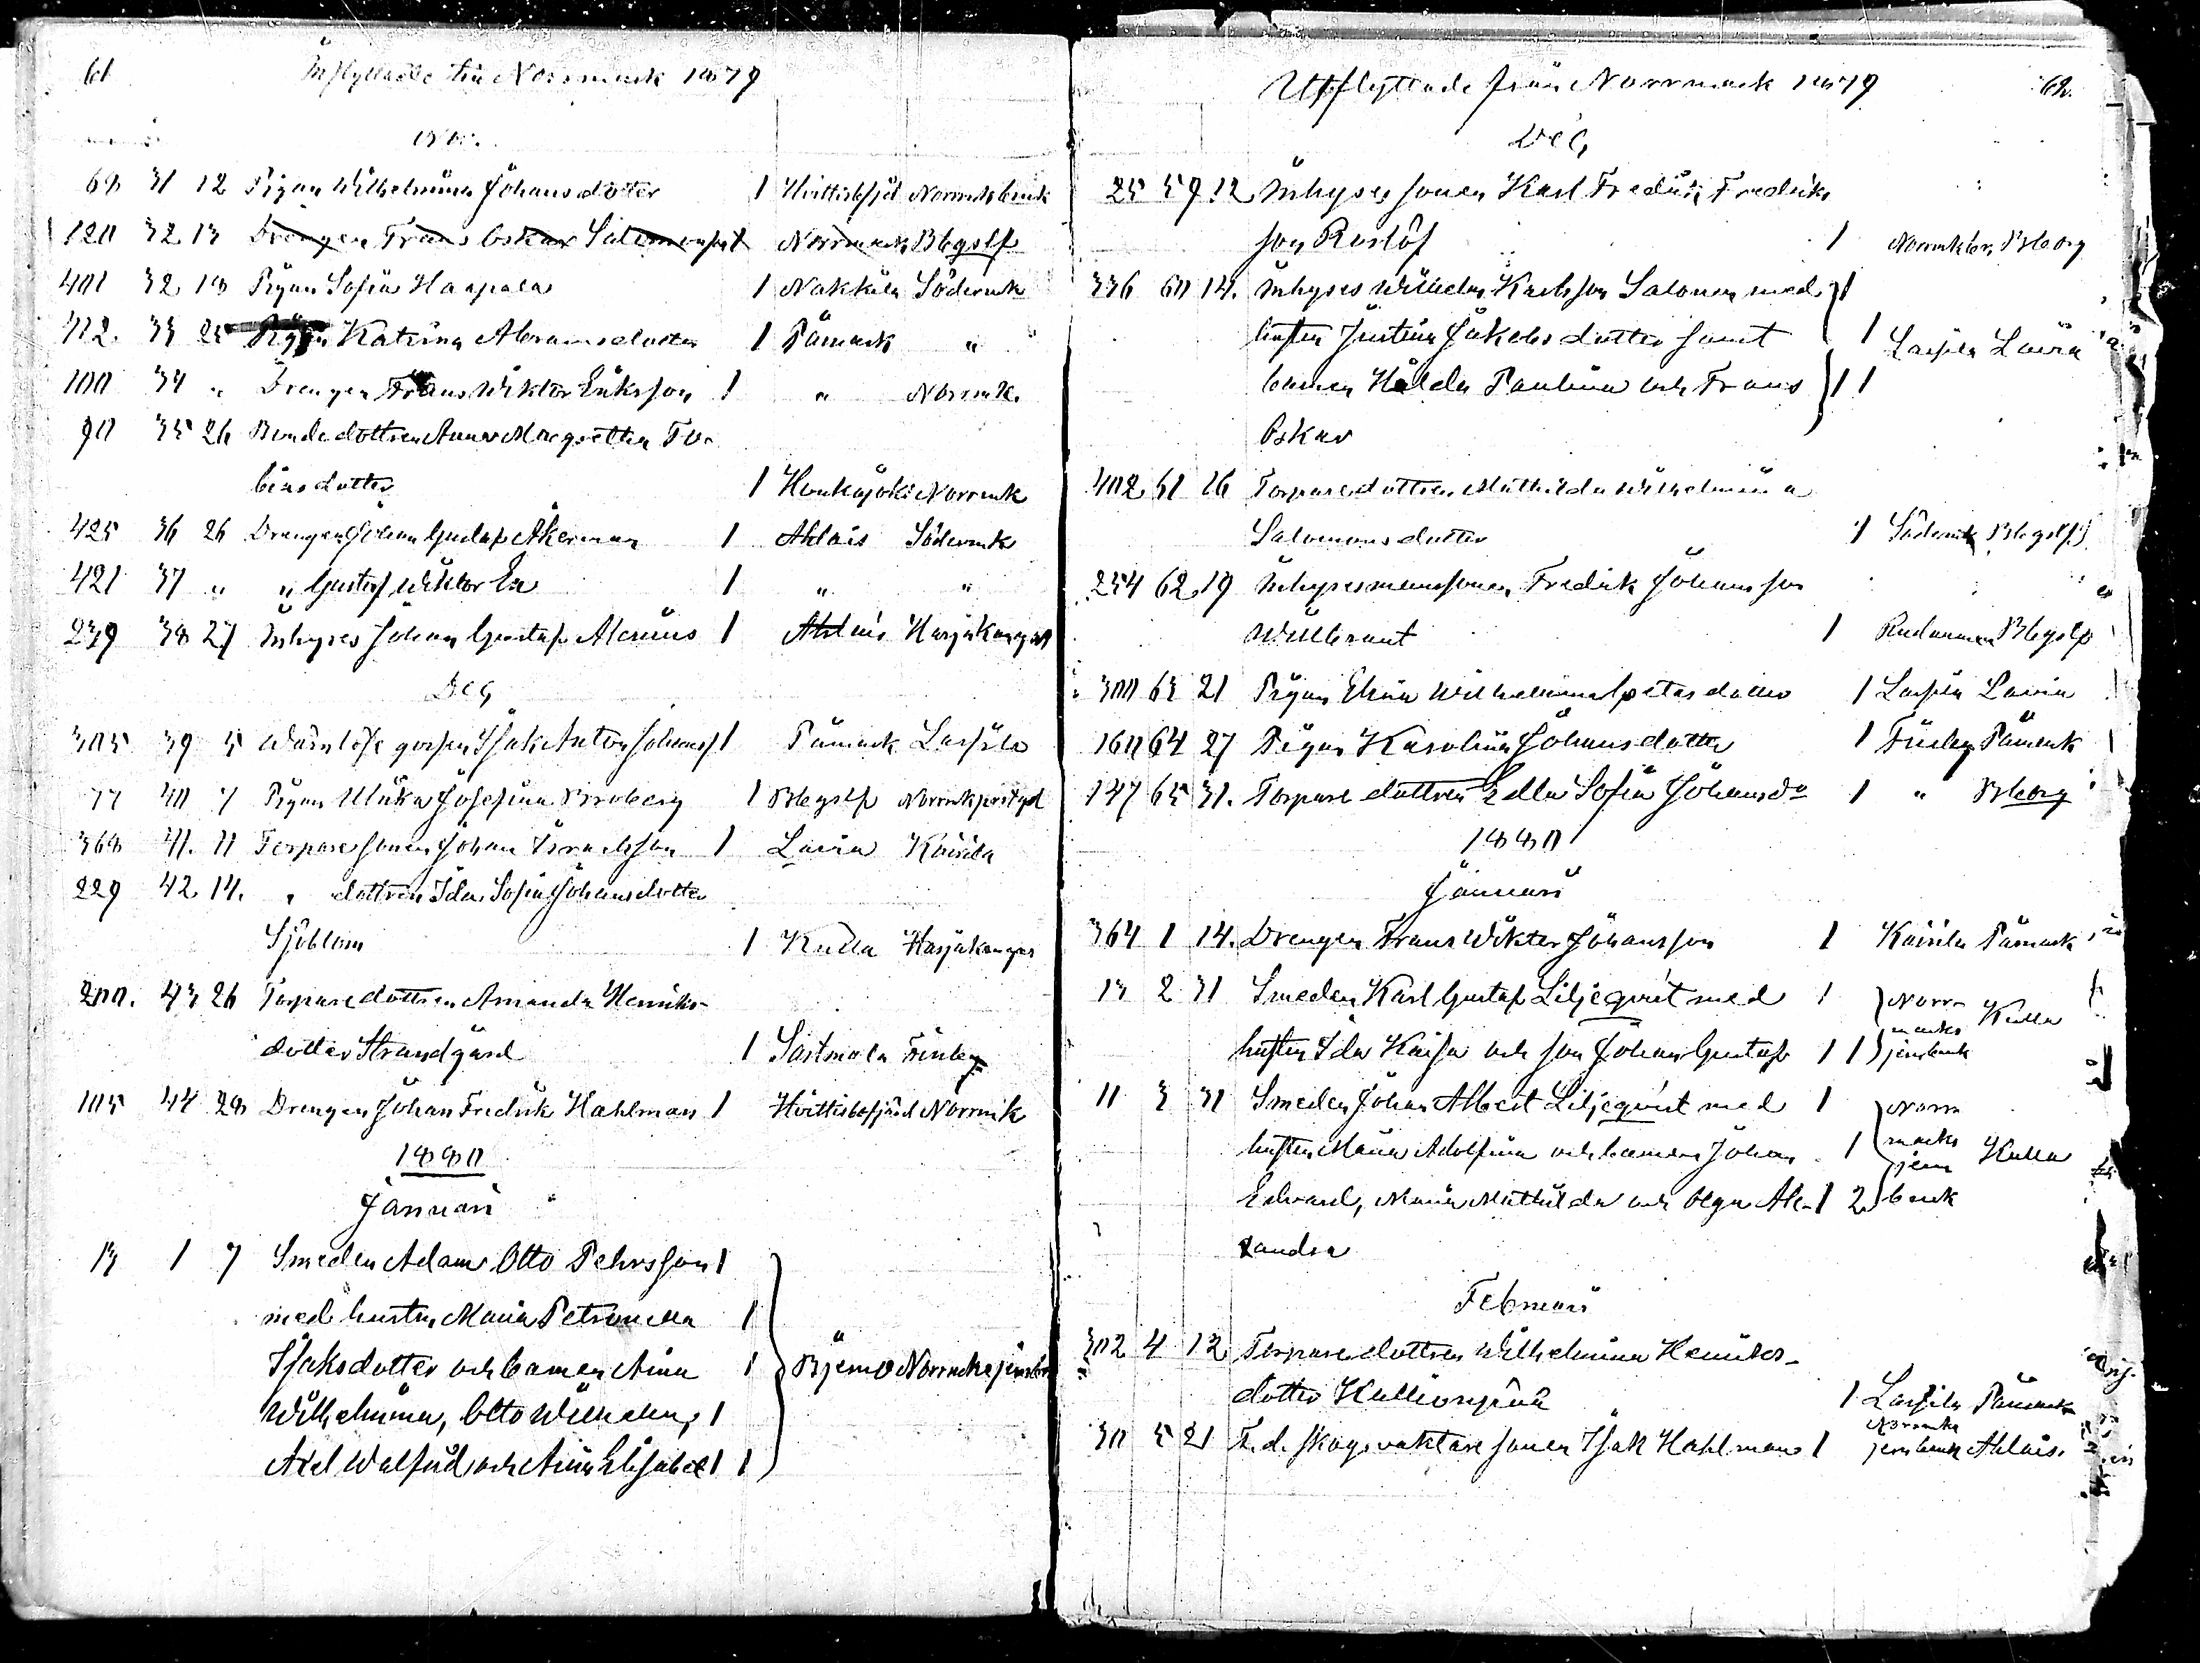 61
Inflyttade till Norrmark 1879
68 31 12 Pigan Wilhelmina Johansdotter 1 Hvittisbofjd Norrmkbruk
120 32 13 Drengen Frans Oskar Norrmark Bbgslf
401 32 18 Pigan Sofia Haapala 1 Nakkila Södermk
412. 33 25 Pigan Katrina Abramsdotter 1 Påmark "
100 34 " Drengen Frans Wiktor Eriksson 1 " Norrmk.
90 35 26 Bondedottren Anna Margretha To-
biasdotter 1 Honkajoki Norrmk
425 36 26 Drengen Johan Gustaf Åkerman 1 Ahlais Södermk
421 37 " " Gustaf Wiktor En 1 " "
239 38 27 Inhyses Johan Gustaf Alenius 1 Ahlais Harjakangas
Dec,
305 39 5 gossen Isak Anton Johanss 1 Påmark Lassila
77 40 7 Pigan Ulrika Josefina Broberg 1 Bbgslf
368 41. 11 Torparesonen Johan Israelsson 1 Lavia Kairila
229 42 14. " dottren Ida Sofia Johansdotter
Sjöblom 1 Kulla Harjakangas
200. 43 26 Torparedottren Amanda Henriks-
dotter Strandgård 1 Sastmola Finby
105 44 28 Drengen Johan Fredrik Hahlman 1 Hvittisbofjärd Norrmk
1880
Januari
13 1 7 Smeden Adam Otto Pehrsson 1
med hustru Maria Petronella 1
Isaksdotter och barnen Aina 1 Bjerno Norrmks jernbr
Wilhelmina, Otto Wilhelm, 1
Axel Walfrid och Aina Elisabet 1 1
Utflyttade från Norrmark 1879 62.
Dec,
25 59 12 Inhyses sonen Karl Fredrik Fredriks
son Roslöf 1 Norrmkbr, Bborg
336 60 14. Inhyses Wilhelm Karlsson Salonen med 1
hustru Justina Jakobsdotter samt 1 Lassila Lavia
barnen Hilda Paulina och Frans 1 1
Oskar
402 61 16 Torparedottren Mathilda Wilhelmina
Salomonsdotter 1 Södermk Bbgslf
254 62 19 Inhysesmanssonen Fredrik Johansson
Willbrant 1 Bbgslf
300 63 21 Pigan Elina Wilhelmina dotter 1 Lassila Lavia
160 64 27 Pigan Karolina Johansdotter 1 Finby Påmark
147 65 31. Torparedottren Edla Sofia Johansdr 1 " Bborg
1880
Januari
364 1 14. Drengen Frans Wiktor Johansson 1 Kairila Påmark
13 2 31 Smeden Karl Gustaf Liljeqvist med 1 Norr-
marks Kulla
hustru Ida Kaisa och son Johan Gustaf 1 1 jernbruk
11 3 31 Smeden Johan Albert Liljeqvist med 1 Norr
hustru Maria Adolfina och barnen Johan 1 marks
jern Kulla
Edvard, Maria Mathilda och Olga Ale- 1 2 bruk
xandra
Februari
302 4 12 Torparedottren Wilhelmina Henriks-
dotter 1 Lassila Påmark
30 5 21 F.d. skogvaktaresonen Isak Hahlman 1 Norrmks
jernbruk Ahlais.